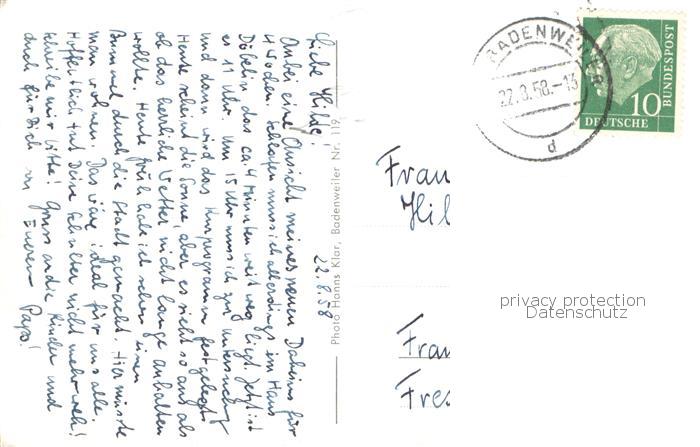 22.8.58
Liebe Hilde!
Anbei eine Ansicht meines neuen Daheims für
4 Wochen. Schlafen muss ich allerdings im Haus
Döbelin das ca. 4 Minuten weit weg liegt. Jetzt ist
es 11 Uhr. Um 15 Uhr muss ich zur Untersuchung
und dann wird das Kurprogramm festgelegt.
Heute scheint die Sonne, aber es sieht so aus als
ob das herrliche Wetter nicht lange anhalten
wollte. Heute früh habe ich schon einen
Bummel durch die Stadt gemacht. Hier müsste
man wohnen. Das wäre ideal für uns alle.
Hoffentlich tut Deine Schulter nicht mehr weh!
Schreibe mir bitte! Gruss an die Kinder und
auch für Dich v. Eurem Papo!
Photo Hanns Klar, Badenweiler Nr. 119
BADENWEILER
22.8.58.-13
d
10
DEUTSCHE BUNDESPOST
Frau
Hil
Frau
Fres
privacy protection
Datenschutz